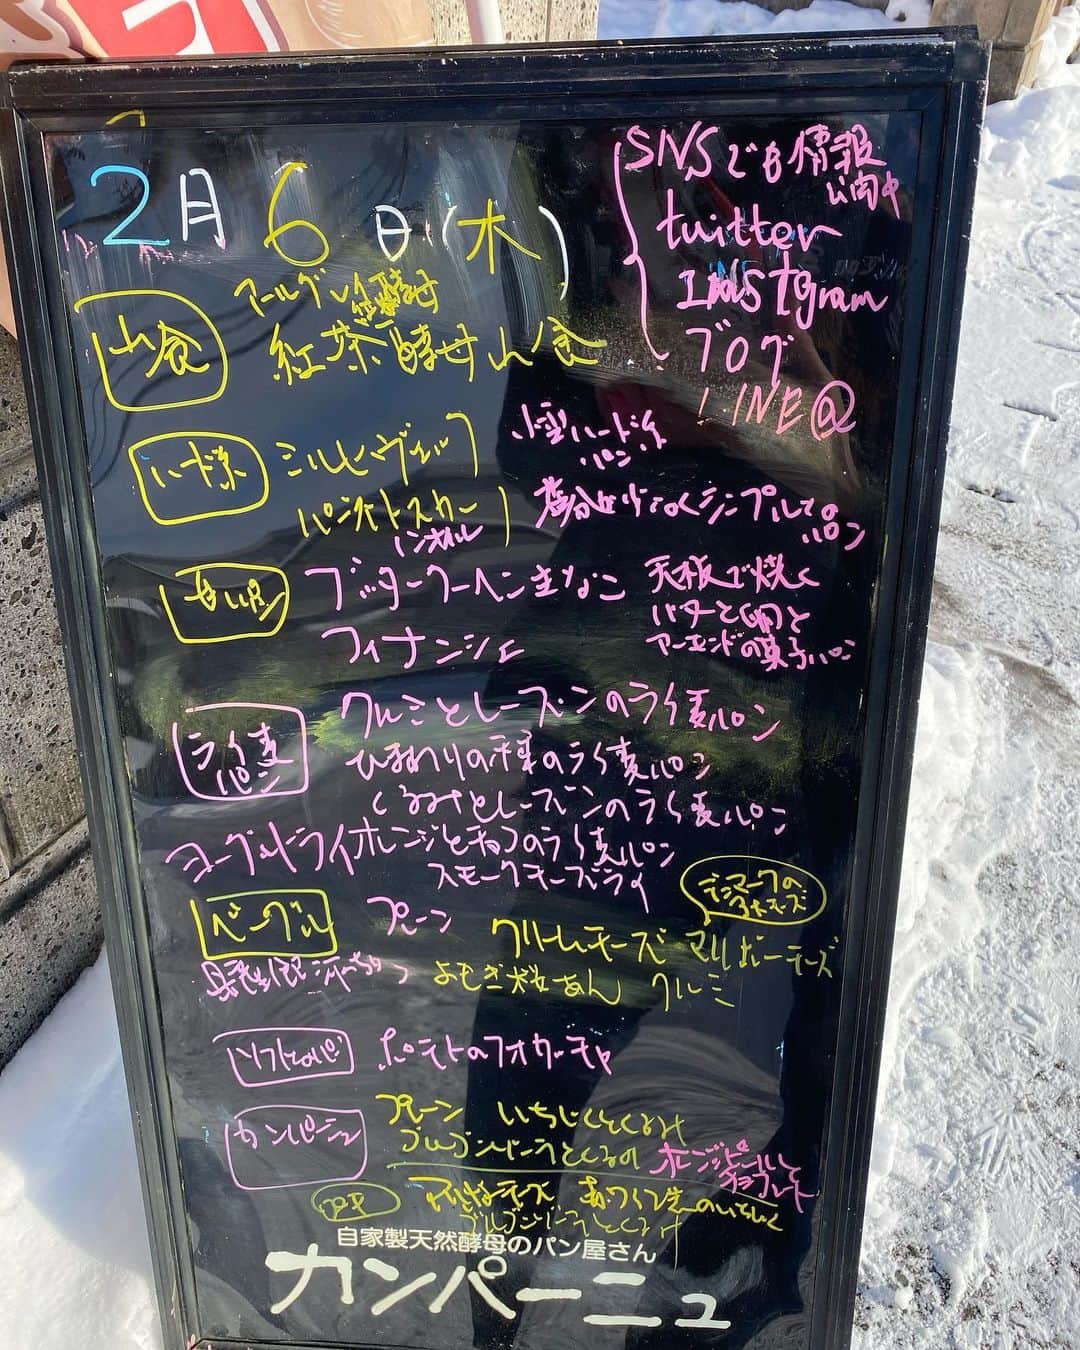 2月6日(木)
SNSでも情報
公開中
twitter
Instgram
ブログ
LINE@
山食
アールグレイ
紅茶酵母山食
ハード系
シルヒヴェック
小型ハード系
パン
パンオトスカーノ
塩分少なくシンプルな
パン
甘いパン
ブッタークーヘン
天板で焼く
バターと卵と
アーモンドの菓子パン
フィナンシェ
ライ麦
パン
クルミとレーズンのライ麦パン
ひまわりの種のライ麦パン
くるみとレーズンのライ麦パン
ヨーグルトライオレンジとチョコのライ麦パン
スモークチーズライ
デンマークの
ベーグル
プレーン
クリームチーズ
マリボーチーズ
よもぎ桜あん
クルミ
ソフトなパン
ポテトのフォカッチャ
カンパーニュ
プレーン
いちじくとくるみ
オレンジピールと
チョコレート
自家製天然酵母のパン屋さん
カンパーニュ